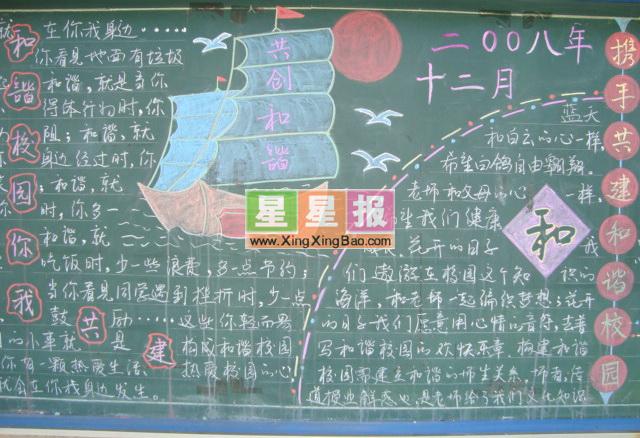 和谐校园你我共建
在你我身边……
你看见地面有垃圾
和谐，就是当你
得体行为时，你
阻；和谐，就
身边经过时，你
；和谐，就
时，你多一
和谐，就
吃饭时，少一些浪费，多一点节约；
当你看见同学遇到挫折时，少一点
鼓励……这些你轻而易
的小事就是构成和谐校园
有一颗热爱生活、热爱校园的心
就会在你我身边发生。
共创和谐
二00八年
十二月
蓝天
和白云的心一样，
希望白鸽自由翱翔。
老师和父母的心一样，
我们健康
花开的日子我
们遨游在校园这个知识的
海洋，和老师一起编织梦想；花开
的日子我们愿意用心情的音符，去谱
写和谐校园的欢快乐章。构建和谐
校园需建立和谐的师生关系。师者，传
道授业解惑也。是老师给了我们文化知识
和
携手共建和谐校园
星星报
www.XingXingBao.com